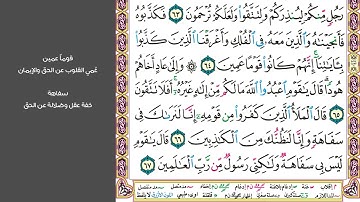 رَجُلٍ مِّنكُمْ لِيُنذِرَكُمْ وَلِتَتَّقُوا۟ وَلَعَلَّكُمْ تُرْحَمُونَ ٦٣ فَكَذَّبُوهُ
فَأَنجَيْنَٰهُ وَٱلَّذِينَ مَعَهُۥ فِى ٱلْفُلْكِ وَأَغْرَقْنَا ٱلَّذِينَ كَذَّبُوا۟
بِـَٔايَٰتِنَآ إِنَّهُمْ كَانُوا۟ قَوْمًا عَمِينَ ٦٤ وَإِلَىٰ عَادٍ أَخَاهُمْ
هُودًا قَالَ يَٰقَوْمِ ٱعْبُدُوا۟ ٱللَّهَ مَا لَكُم مِّنْ إِلَٰهٍ غَيْرُهُۥٓ أَفَلَا تَتَّقُونَ
٦٥ قَالَ ٱلْمَلَأُ ٱلَّذِينَ كَفَرُوا۟ مِن قَوْمِهِۦٓ إِنَّا لَنَرَىٰكَ فِى
سَفَاهَةٍ وَإِنَّا لَنَظُنُّكَ مِنَ ٱلْكَٰذِبِينَ ٦٦ قَالَ يَٰقَوْمِ
لَيْسَ بِى سَفَاهَةٌ وَلَٰكِنِّى رَسُولٌ مِّن رَّبِّ ٱلْعَٰلَمِينَ ٦٧
قوماً عمين
عُمي القلوب عن الحق والإيمان
سفاهة
خفة عقل وضلالة عن الحق